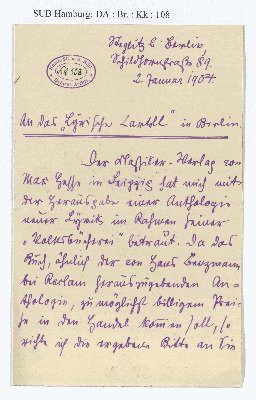 SUB Hamburg: DA : Br. : Kk : 108
Steglitz b. Berlin
Schildhornstraße 89.
2. Januar 1904.
An das „Lyrische Cartell“ in Berlin.
Der Klassiker-Verlag von
Max Hesse in Leipzig hat mich mit
der Herausgabe einer Anthologie
neuer Lyrik im Rahmen seiner
„Volksbücherei“ betraut. Da das
Buch, ähnlich der von Hans Benzmann
bei Reclam herausgegebenden An-
thologie, zu möglichst billigem Prei-
se in den Handel kommen soll, so
richte ich die ergebene Bitte an Sie